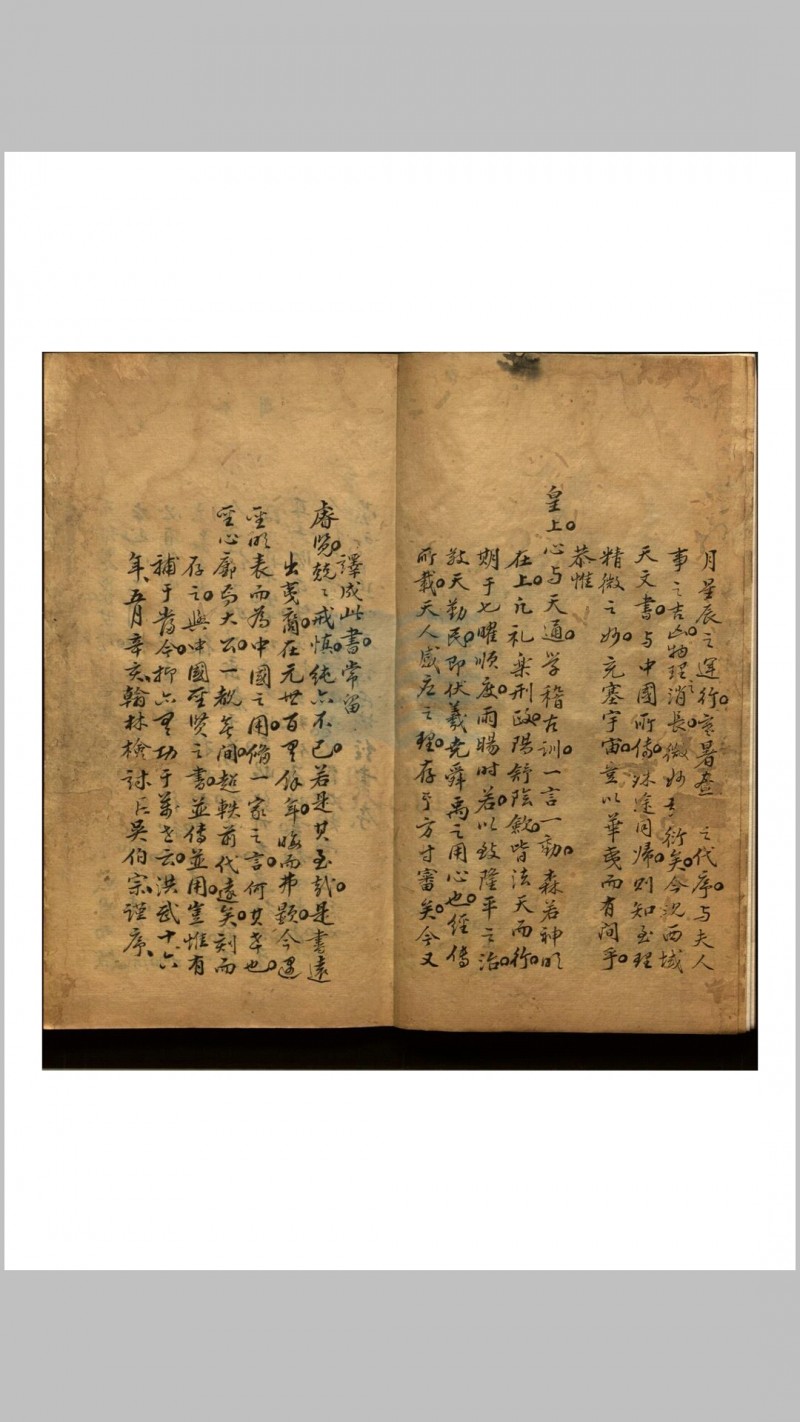 月星辰之運行寒暑晝 之代序与夫人
事之吉凶物理之消長微妙弗衍矣今观西域
天文書与中國所傳殊途同帰则知至理
精微之妙充塞宇宙豈以華夷而有间乎
恭惟
皇上心与天通学稽古訓一言一動森若神明
在上凡礼楽刑政陽舒陰歛皆法天而行
期于七曜順度雨暘时若以致隆平之治
敬天勤民即伏羲尭舜禹之用心也経傳
所載天人感应之理存乎方寸審矣今又
譯成此書常留
睿览兢〻戒慎純亦不已若是其至哉是書遠
出夷裔在元世百里餘年晦而弗顯今遇
聖明表而為中國之用俻一家之言何其幸也
聖心廓焉大公一視無间超軼前代遠矣刻而
存之與中國聖贤之書並傳並用豈惟有
補于當今抑亦有功于萬世云洪武十六
年五月辛亥翰林検討臣吴伯宗謹序